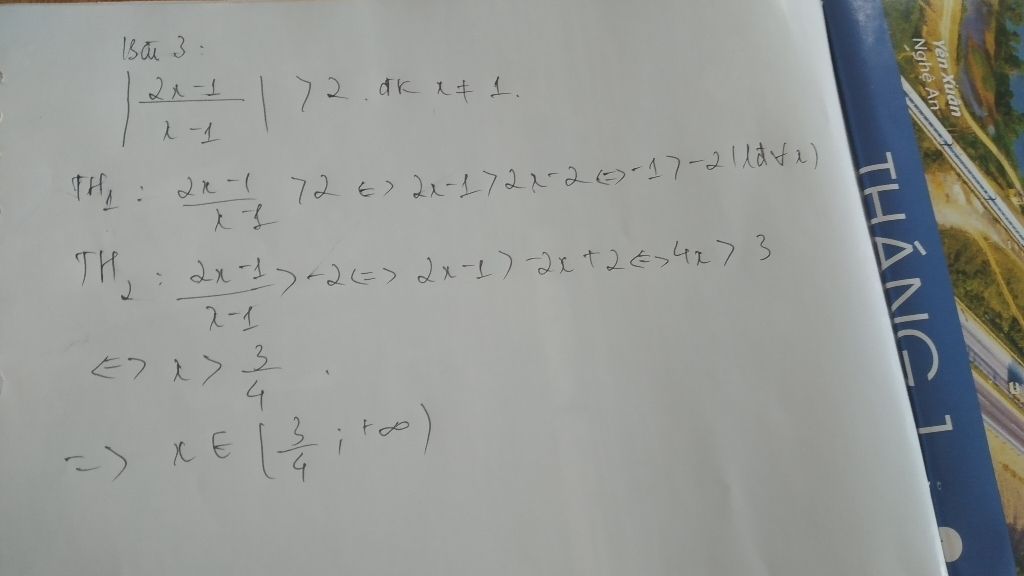 Bài 3:
| 2x-1 / x-1 | > 2. đk x ≠ 1.
TH1: 2x-1 / x-1 > 2 <=> 2x-1 > 2x-2 <=> -1 > -2 (lđ ∀x)
TH2: 2x-1 / x-1 > -2 <=> 2x-1 > -2x+2 <=> 4x > 3
<=> x > 3/4.
=> x ∈ [3/4; +∞)
Yên Xuân
Nghệ An
THÁNG 1